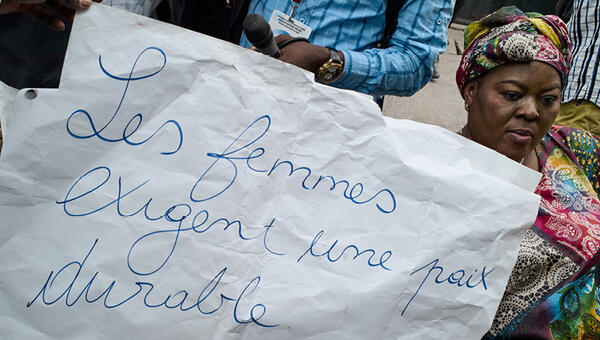 Les femmes
exigent une paix
durable